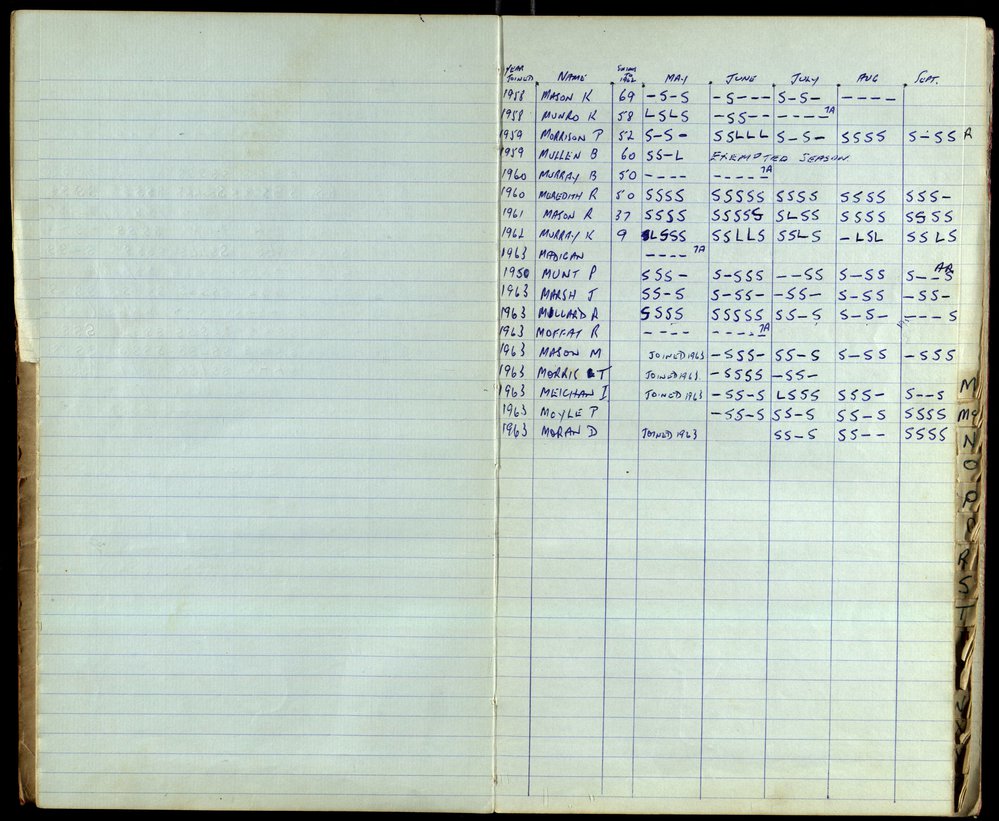 YEAR JOINED NAME SWIMS TO 1962 MAY JUNE JULY AUG SEPT.
1958 MASON K 69 -S-S -S--- S-S- ----
1958 MUNRO K 58 LSLS -SS-- ---- TA
1959 MORRISON P 52 S-S- SSLLL S-S- SSSS S-SS R
1959 MULLEN B 60 SS-L EXEMPTED SEASON
1960 MURRAY B 50 ---- ----- TA
1960 MEREDITH R 50 SSSS SSSSS SSSS SSSS SSS-
1961 MASON R 37 SSSS SSSSS SLSS SSSS SSSS
1962 MURRAY K 9 LSSS SSLLS SSLS -LSL SSLS
1963 MADIGAN ---- TA
1950 MUNT P SSS- S-SSS --SS S-SS S--S
1963 MARSH J SS-S S-SS- -SS- S-SS -SS-
1963 MILLARD R SSSS SSSSS SS-S S-S- ---S
1963 MOFFAT R ---- ----- TA
1963 MASON M JOINED 1963 -SSS- SS-S S-SS -SSS
1963 MORRIS T JOINED 1963 -SSSS -SS-
1963 MEICHAN I JOINED 1963 -SS-S LSSS SSS- S--S
1963 MOYLE P -SS-S SS-S SS-S SSSS
1963 MORAN D JOINED 1963 SS-S SS-- SSSS
M
Mc
N
O
P
R
S
T